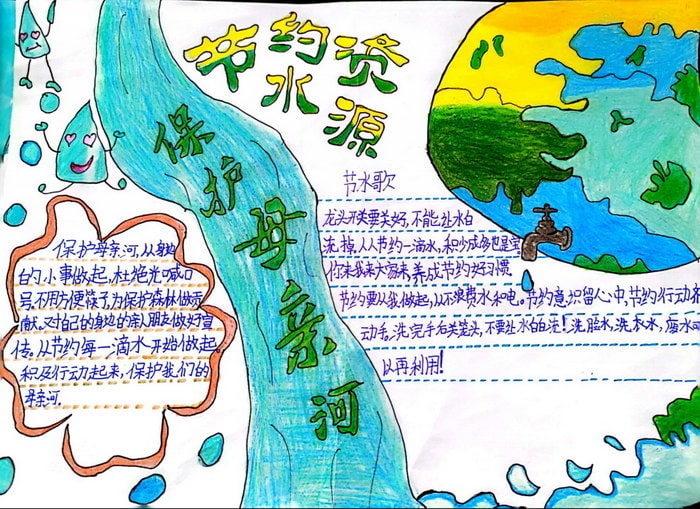 节约水资源
保护母亲河
保护母亲河,从身边
的小事做起,杜绝光喊口
号,不用方便筷子,为保护森林做贡
献。对自己的身边的亲人朋友做好宣
传。从节约每一滴水开始做起
积及行动起来,保护我们的
母亲河.
节水歌
龙头开关要关好,不能让水白
流掉,人人节约一滴水,积少成多也是宝
你来我来大家来,养成节约好习惯
节约要从我做起,从不浪费水和电。节约意识留人心中,节约行动
动手。洗完手后关笼头,不要让水白流!洗脸水,洗衣水,废水可
以再利用!